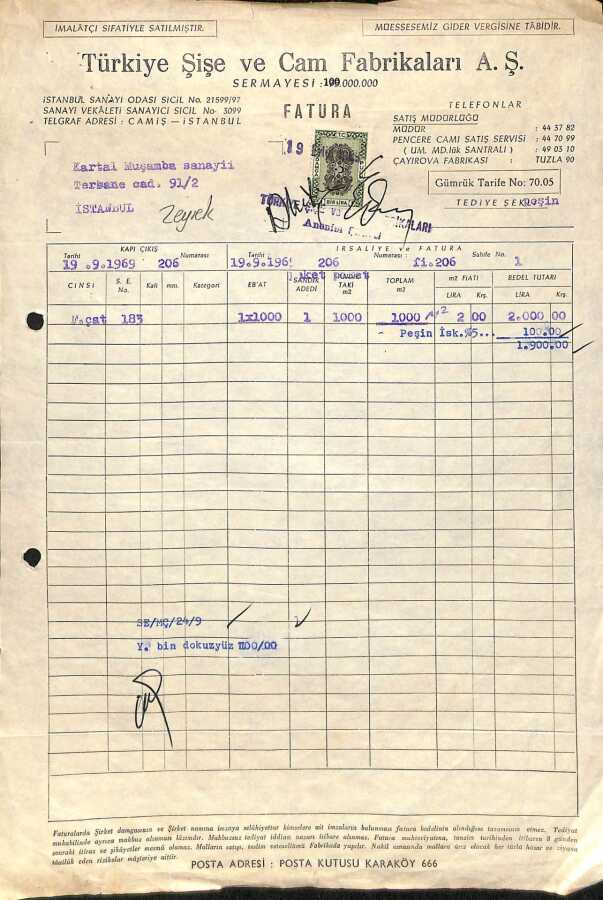 İMALÂTÇI SIFATİYLE SATILMIŞTIR.
MÜESSESEMİZ GİDER VERGİSİNE TÂBİDİR.
Türkiye Şişe ve Cam Fabrikaları A. Ş.
SERMAYESİ : 100.000.000
İSTANBUL SANAYİ ODASI SİCİL No. 21599/97
SANAYİ VEKÂLETİ SANAYİCİ SİCİL No. 3099
TELGRAF ADRESİ : CAMİŞ — İSTANBUL
FATURA
TELEFONLAR
SATIŞ MÜDÜRLÜĞÜ
MÜDÜR : 44 37 82
PENCERE CAMI SATIŞ SERVİSİ : 44 70 99
( UM. MD.lük SANTRALI ) : 49 03 10
ÇAYIROVA FABRİKASI : TUZLA 90
19
BİR LİRA
Kartal Muşamba sanayii
Tersane cad. 91/2
İSTANBUL
Zeyrek
Gümrük Tarife No: 70.05
TEDİYE ŞEKLİ peşin
Anonim
KAPI ÇIKIŞ
İRSALİYE ve FATURA
Tarihi Numarası Tarihi Numarası Sahife No.
19 .9.1969 206 19.9.196 206 fi.206 1
CİNSİ S. E. No. Kali mm. Kategori EB'AT SANDIK ADEDİ TAKI m2 TOPLAM m2 m2 FİATI BEDEL TUTARI
LİRA Krş. LİRA Krş.
F.çat 183 1x1000 1 1000 1000 M2 2 00 2.000 00
- Peşin İsk.%5... 100.00
1.900.00
SE/MÇ/24/9
Y. bin dokuzyüz TL00/00
Faturalarda Şirket damgasının ve Şirket namına imzaya selâhiyettar kimselere ait imzaların bulunması fatura bedelinin alındığını tazammun etmez. Tediyat
mukabilinde ayrıca makbuz alınması lâzımdır. Makbuzsuz tediyat iddiası nazarı itibare alınmaz. Fatura muhteviyatına, tanzim tarihinden itibaren 8 günden
sonraki itiraz ve şikâyetler mesmû olamaz. Malların satışı, teslim Fabrikada yapılır. Nakil esnasında mallara arız olacak her türlü hasar ve ziyana
eden rizikolar müşteriye aittir.
POSTA ADRESİ : POSTA KUTUSU KARAKÖY 666